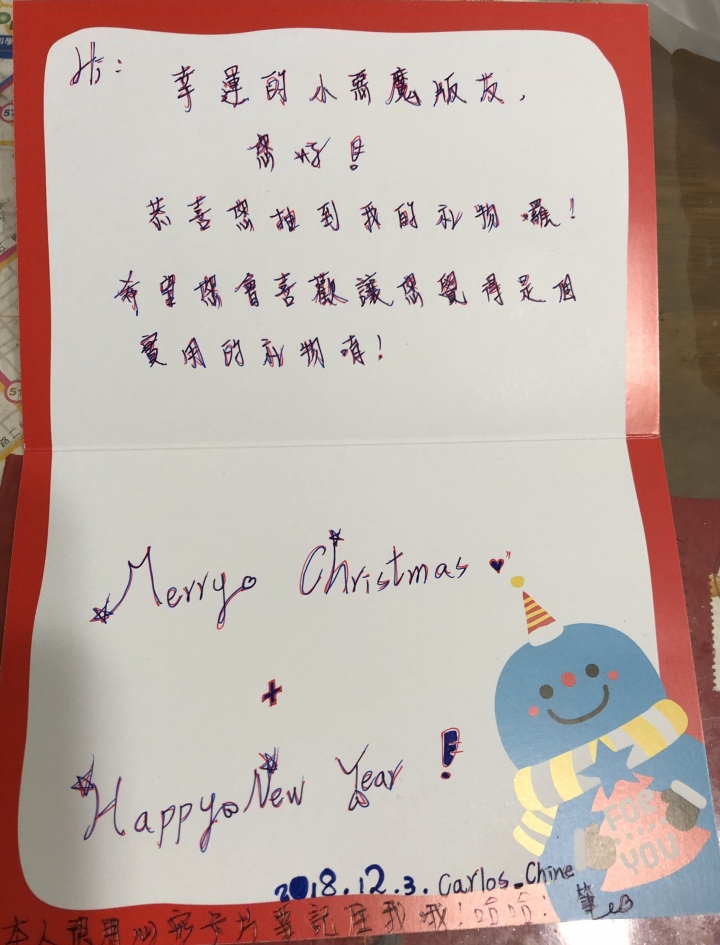 Hi:
幸運的小惡魔版友,
您好!
恭喜您抽到我的礼物囉!
希望您會喜歡讓您覺得是個
實用的礼物唷!
Merry Christmas
+
Happy New Year!
FOR
YOU
2018.12.3. Carlos_Chine
筆
本人